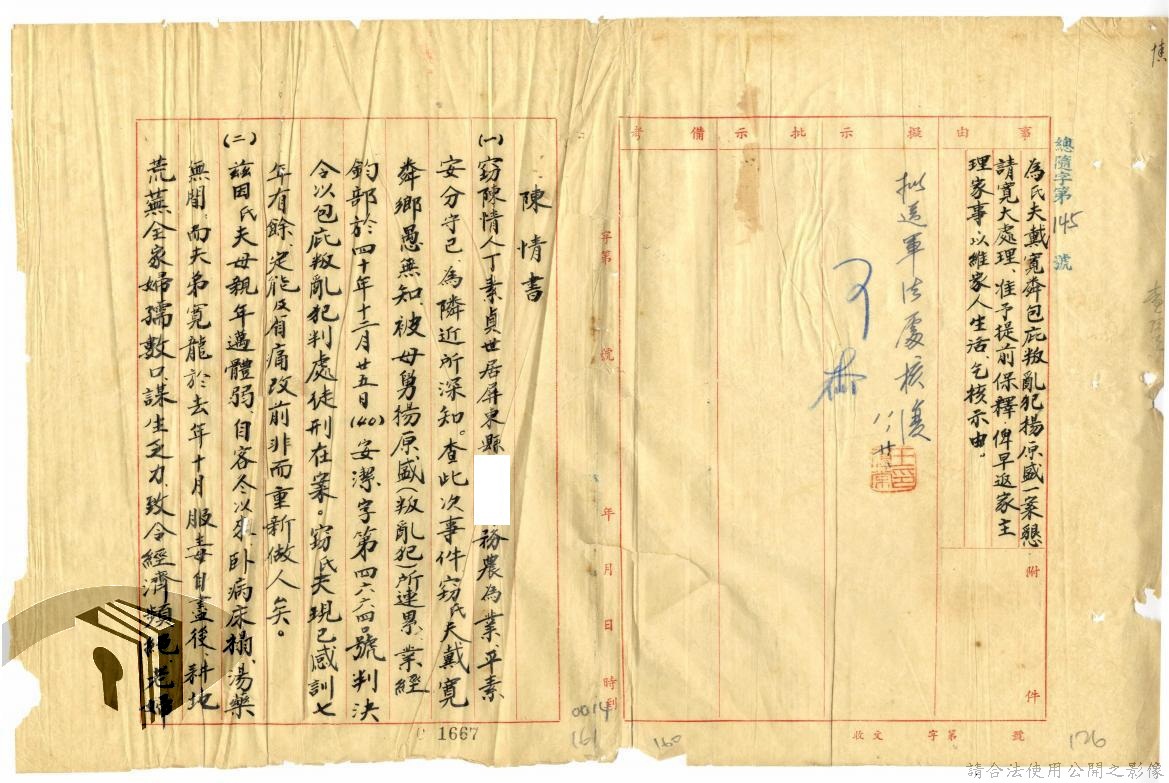 事由
擬示
批示
備考
附件
收文 字第 號
總隨字第145號
為氏夫戴寬奔包庇叛亂犯揚原盛一案懇
請寬大處理、准予提前保釋、俾早返家主
理家事、以維家人生活、乞核示由。
批送軍法處核復
字第 號
年 月 日 時到
陳情書
(一)竊陳情人丁素貞世居屏東縣 務農為業、平素
安分守己、為隣近所深知。查此次事件竊氏夫戴寬
奔鄉愚無知、被母舅揚原盛(叛亂犯)所連累、業經
鈞部於四十年十二月廿五日(40)安潔字第四六六四號判決
令以包庇叛亂犯判處徒刑在案。竊氏夫現已感訓七
年有餘、定能及有痛改前非而重新做人矣。
(二)茲因氏夫母親年邁體弱、自客冬以來卧病床榻、湯藥
無間、而夫弟寬龍於去年十月服毒自盡後、耕地
荒蕪全家婦孺數口謀生乏力、致令經濟頻絕、老婦
1667
0014
161
160
126
請合法使用公開之影像